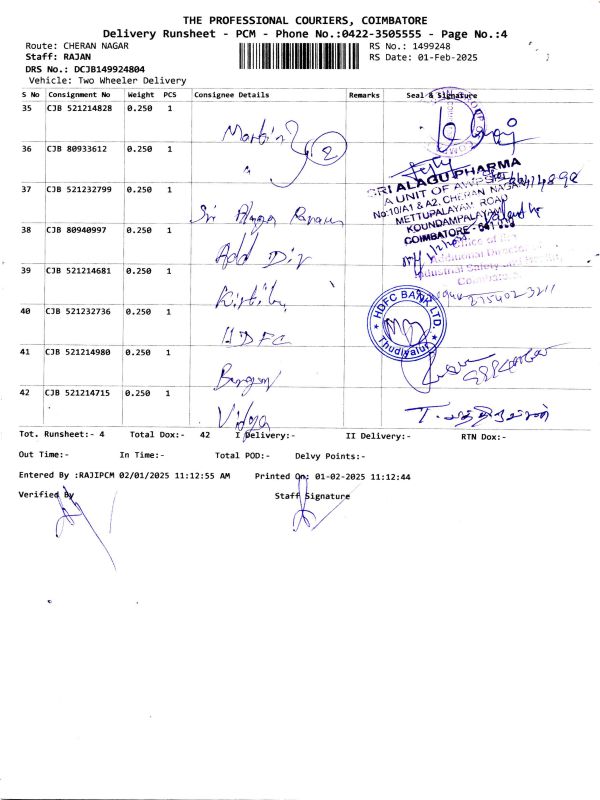 THE PROFESSIONAL COURIERS, COIMBATORE
Delivery Runsheet - PCM - Phone No.:0422-3505555 - Page No.:4
Route: CHERAN NAGAR
RS No.: 1499248
Staff: RAJAN
RS Date: 01-Feb-2025
DRS No.: DCJB149924804
Vehicle: Two Wheeler Delivery
S No Consignment No Weight PCS Consignee Details Remarks Seal & Signature
35 CJB 521214828 0.250 1
Martin 2
36 CJB 80933612 0.250 1
SRI ALAGU PHARMA
A UNIT OF
No:10/A1 & A2, CHERAN NAGAR
METTUPALAYAM ROAD
KOUNDAMPALAYAM
COIMBATORE
37 CJB 521232799 0.250 1
Sri
38 CJB 80940997 0.250 1
Add Dir
Office of
Additional Director
Industrial Safety and Health,
39 CJB 521214681 0.250 1
40 CJB 521232736 0.250 1
HDFC
HDFC BANK LTD.
Thudiyalur
41 CJB 521214980 0.250 1
42 CJB 521214715 0.250 1
Vidya
Tot. Runsheet:- 4 Total Dox:- 42 I Delivery:- II Delivery:- RTN Dox:-
Out Time:- In Time:- Total POD:- Delvy Points:-
Entered By :RAJIPCM 02/01/2025 11:12:55 AM Printed On: 01-02-2025 11:12:44
Verified By Staff Signature